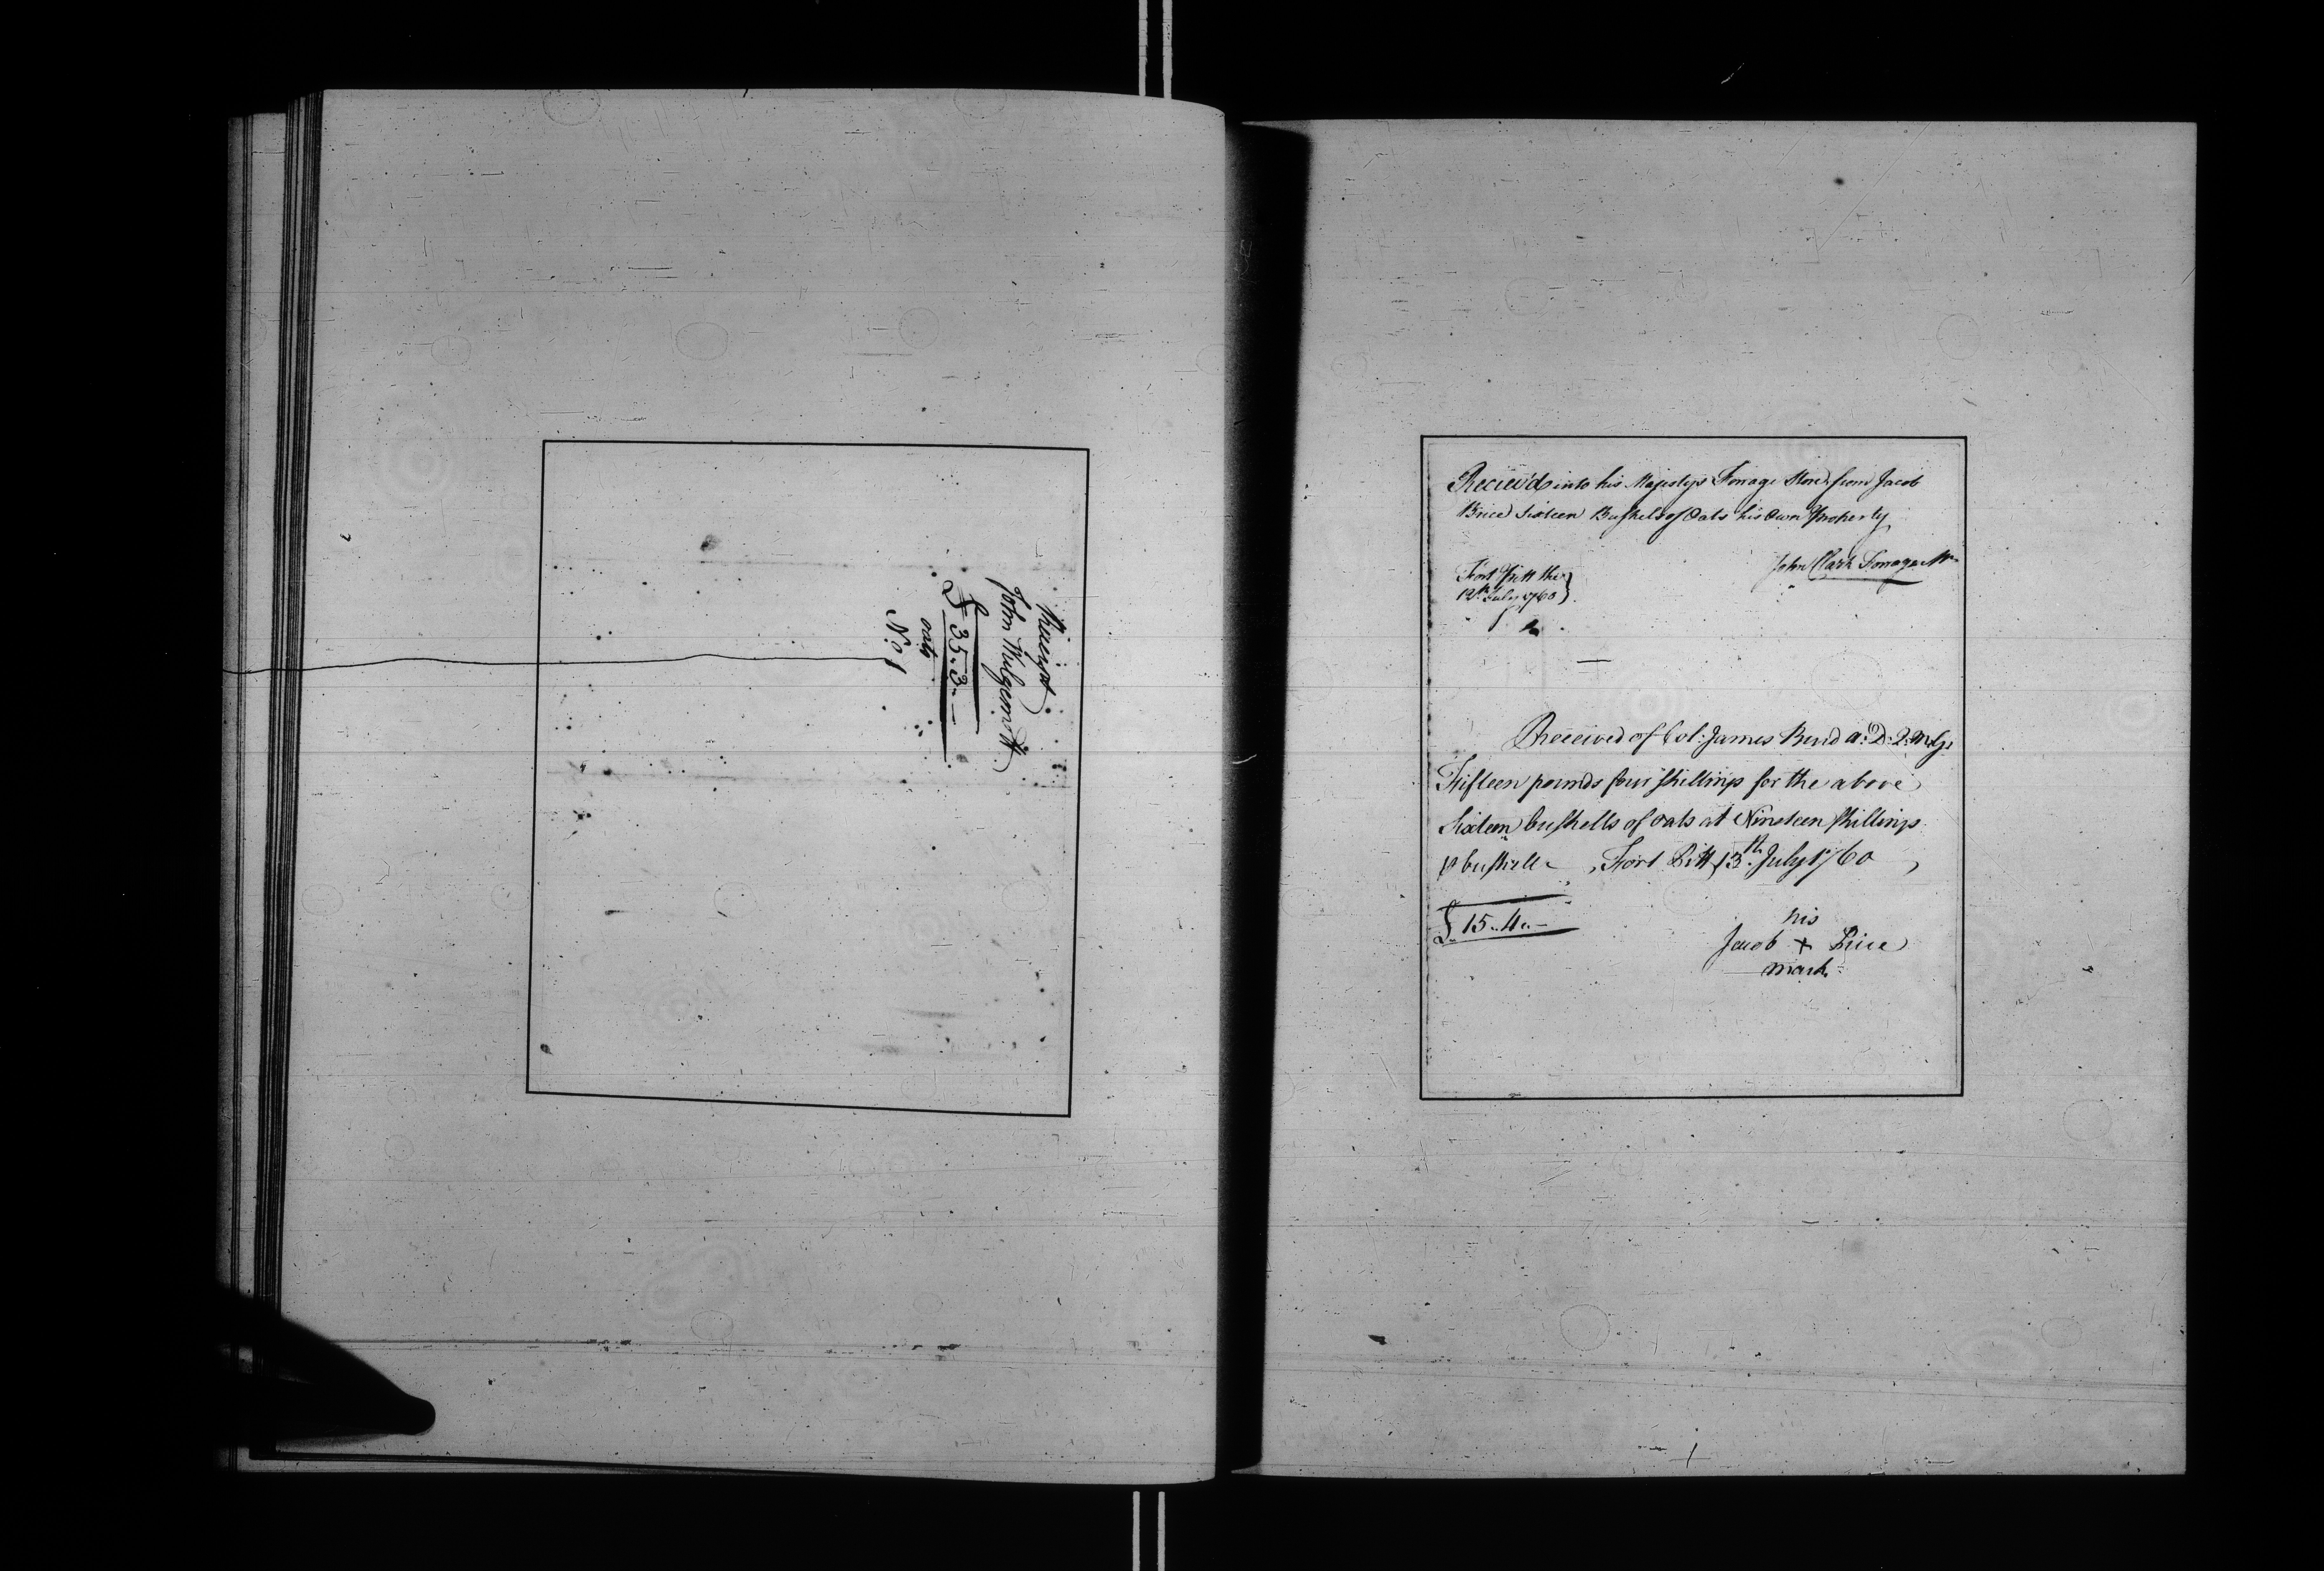 Receipt
John Mulgemott
£ 35..3..—
oats
No. 1
Reciev'd into his Majestys Forrage Store from Jacob
Brice Sixteen Bushels of Oats his Own Property
John Clark Forrage Mr
Fort Pitt the
12th July 1760
Received of Col: James Burd a: D: Q: M: G:
Fifteen pounds four shillings for the above
Sixteen bushells of oats at Nineteen shillings
⅌ bushell - Fort Pitt 13th July 1760
£ 15..4..—
his
Jacob + Brice
mark